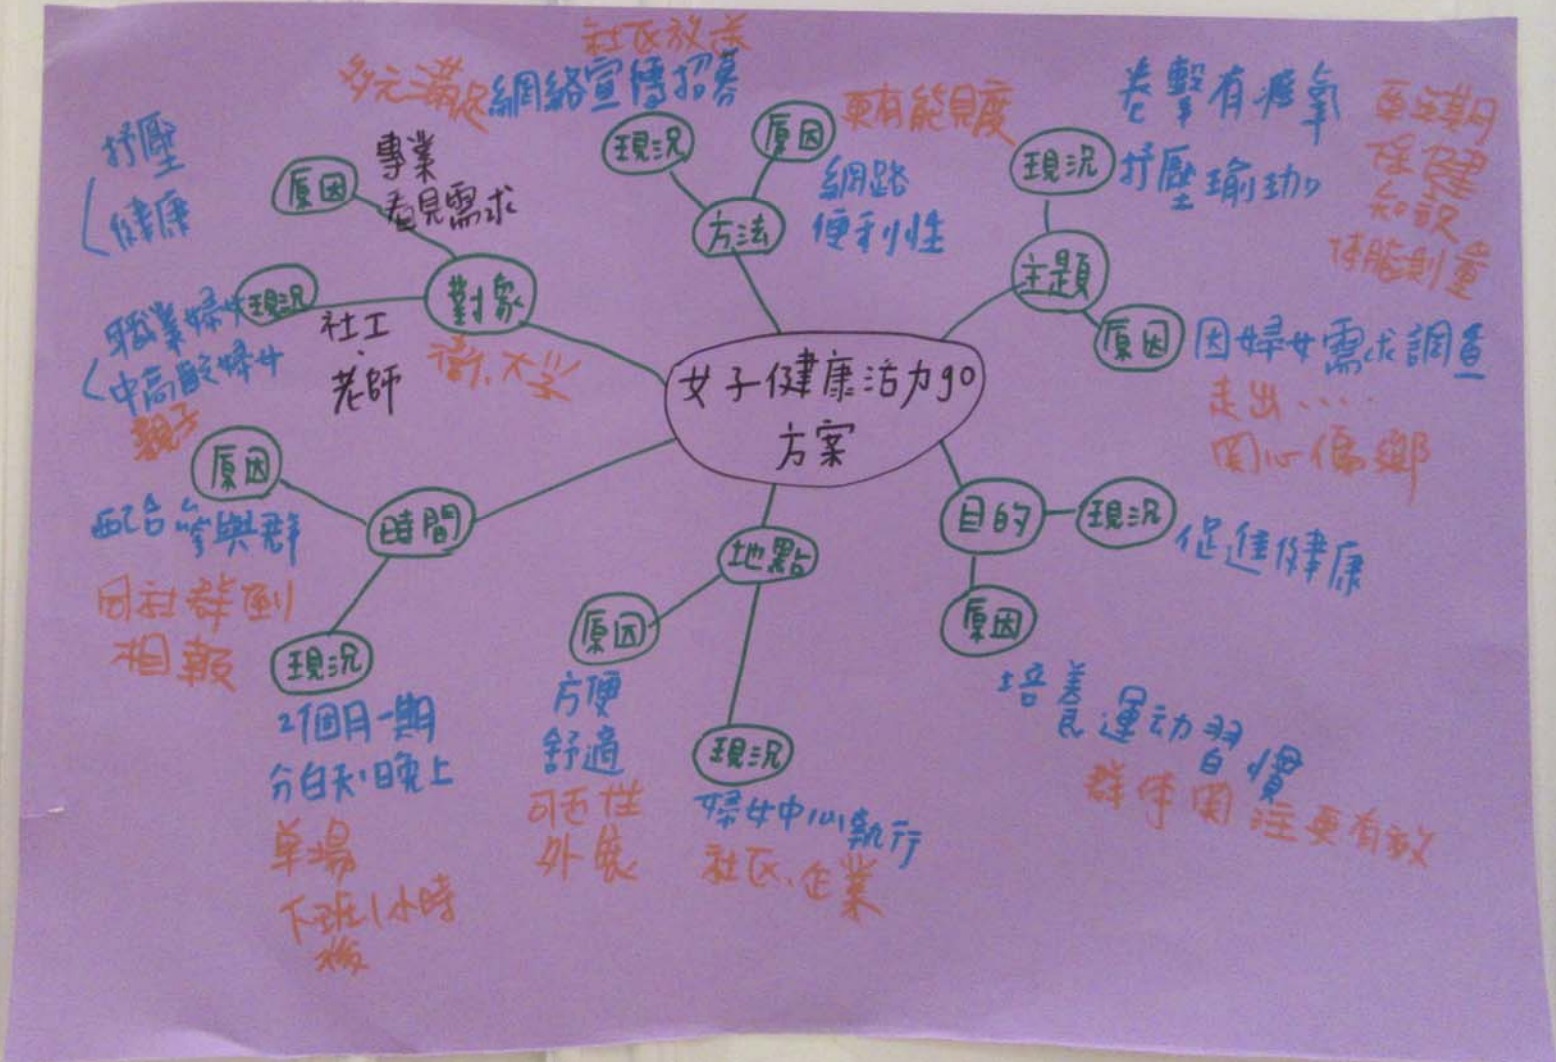 女子健康活力go
方案
方法
現況
社區放送
網絡宣傳招募
原因
更有能見度
網路
便利性
主題
現況
拳擊有氧
抒壓瑜珈
更年期
保健
知識
体脂測量
原因
因婦女需求調查
走出....
関心偏鄉
目的
現況
促進健康
原因
培養運动習慣
群体関注更有效
地點
原因
方便
舒適
可近性
外展
現況
婦女中心執行
社區、企業
時間
原因
配合參與群
同社群倒
相報
現況
2個月一期
分白天、晚上
單場
下班1小時
後
對象
原因
專業
看見需求
多元滿足
抒壓
健康
現況
社工、
老師
衛、大学
職業婦女
中高齡婦女
親子